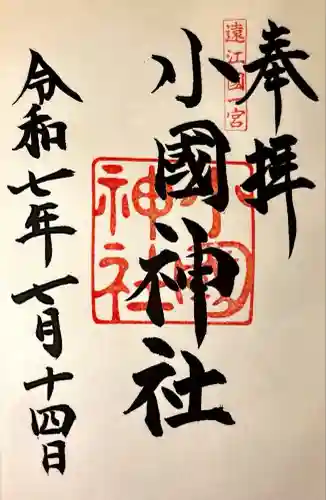 奉拝
遠江國一宮
小國神社
小國神社
令和七年七月十四日